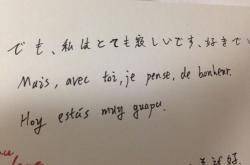 でも、私はとても寂しいです、好きで
Mais, avec toi, je pense, de bonheur.
Hoy estás muy guapa.